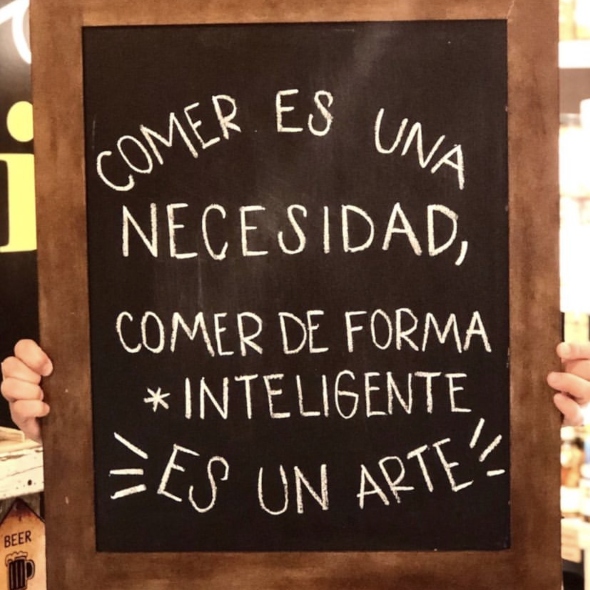 COMER ES UNA
NECESIDAD,
COMER DE FORMA
*INTELIGENTE
ES UN ARTE
BEER